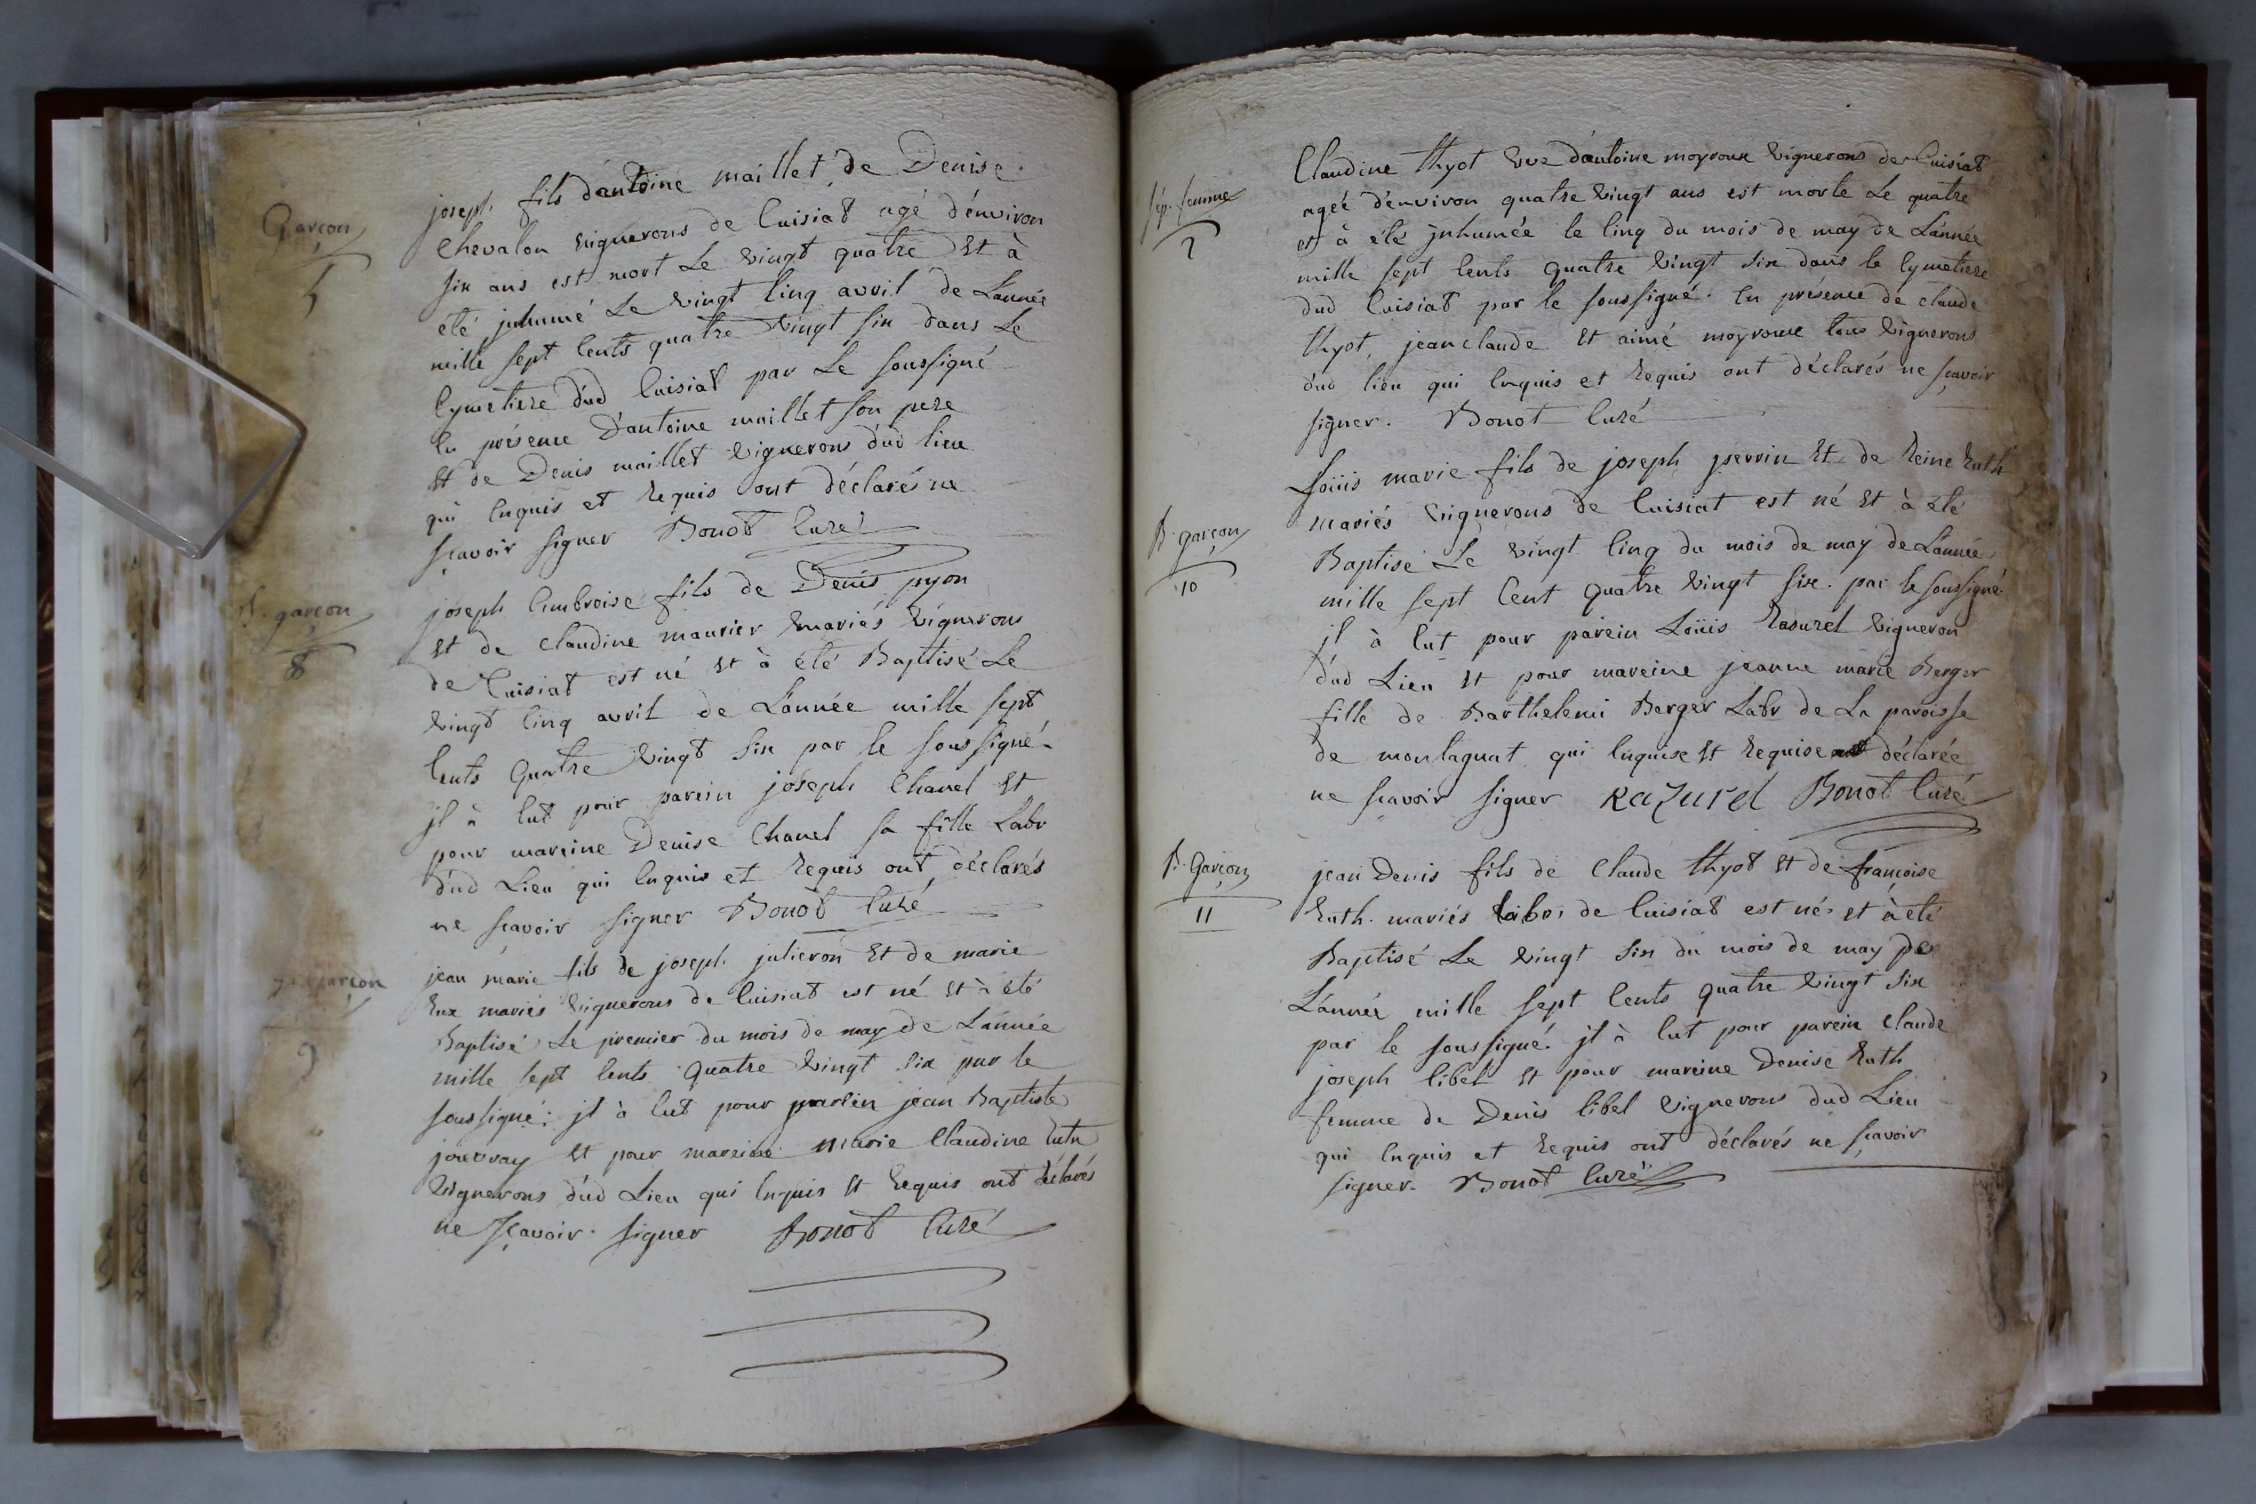 Garçon
5
joseph fils d'antoine maillet de Denise
Chevalon vignerons de Cuisiat agé d'environ
six ans est mort Le vingt quatre Et à
été inhumé Le vingt cinq avril de L'année
mille sept cents quatre vingt six dans Le
Cymetiere dud Cuisiat par Le soussigné
En présence D'antoine maillet son pere
Et de Denis maillet vignerons dud lieu
qui Enquis et Requis ont déclarés ne
sçavoir signer Bonot Curé
B. garçon
8
joseph Ambroise fils de Denis pyon
Et de Claudine maurier mariés vignerons
de Cuisiat est né Et à été Baptisé Le
vingt cinq avril de L'année mille sept
Cents Quatre vingt six par le soussigné
jl à Eut pour parein joseph Chanel Et
pour mareine Denise Chanel sa fille Labr
dud Lieu qui Enquis et Requis ont déclarés
ne sçavoir signer Bonot Curé
garçon
9
jean marie fils de joseph julieron Et de marie
mariés vignerons de Cuisiat est né Et à été
Baptisé Le premier du mois de may de L'année
mille sept cents Quatre vingt six par le
soussigné; jl à Eut pour parein jean Baptiste
jouvray Et pour mareine marie Claudine
vignerons dud Lieu qui Enquis Et Requis ont déclarés
ne sçavoir signer Bonot Curé
sép. femme
7
Claudine thyot vve d'antoine moyroux vignerons de Cuisiat
agée d'environ quatre vingt ans est morte Le quatre
et à été jnhumée le cinq du mois de may de L'année
mille sept cents quatre vingt six dans le Cymetiere
dud Cuisiat par le soussigné. En présence de claude
thyot, jean claude Et aimé moyroux tous vignerons
dud lieu qui Enquis et Requis ont déclarés ne sçavoir
signer. Bonot Curé
B. garçon
10
Loüis marie fils de joseph perrin Et de Reine Euth
mariés vignerons de Cuisiat est né Et à été
Baptisé Le vingt cinq du mois de may de L'année
mille sept Cent Quatre vingt six. par le soussigné
jl à Eut pour parein Loüis Rasurel vigneron
dud Lieu Et pour mareine jeanne marie Berger
fille de Barthelemi Berger Labr de La paroisse
de montagnat qui Enquise Et Requise déclarée
ne sçavoir signer Razurel Bonot Curé
B. Garçon
11
jean Denis fils de Claude thyot Et de françoise
Euth mariés labrs de Cuisiat est né et à été
Baptisé Le vingt six du mois de may De
L'année mille sept cents quatre vingt six
par le soussigné. jl à Eut pour parein Claude
joseph libel Et pour mareine Denise Euth
femme de Denis libel vignerons dud Lieu
qui Enquis et Requis ont déclarés ne sçavoir
signer. Bonot Curé